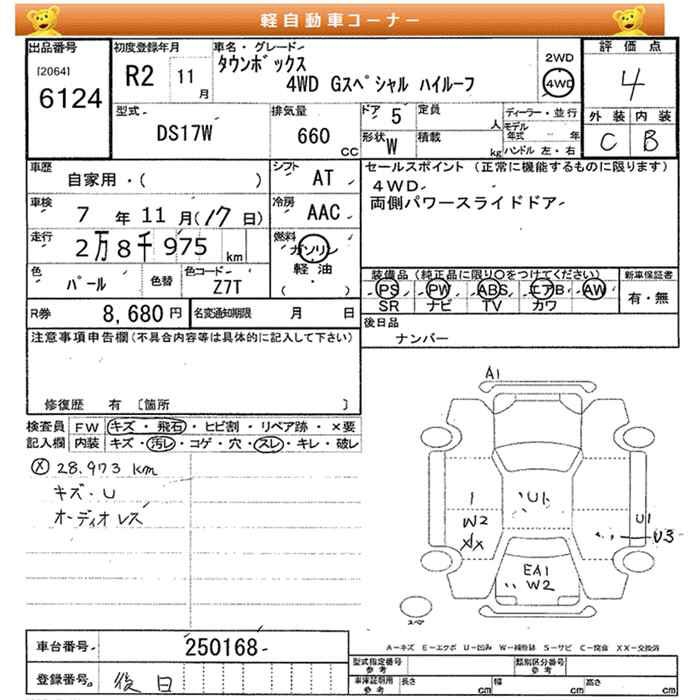 軽自動車コーナー
出品番号 初度登録年月 車名・グレード 評価点
[2064] 6124 R2 11月 タウンボックス 2WD
4WD Gスペシャル ハイルーフ 4WD 4
型式 DS17W 排気量 660 CC ドア 5 定員 人 ディーラー・並行 外装 内装
形状 W 積載 kg モデル年式 年 C B
ハンドル 左・右
車歴 自家用・( ) シフト AT セールスポイント (正常に機能するものに限ります)
車検 7年 11月(17日) 冷房 AAC 4WD
両側パワースライドドア
走行 2万8千975 km 燃料 ガソリン
軽油
( )
色 パール 色替 色コード Z7T
装備品 (純正品に限り○をつけてください) 新車保証書
PS PW ABS エアB AW 有・無
SR ナビ TV カワ
R券 8,680円 名変通知期限 月 日 後日品
ナンバー
注意事項申告欄(不具合内容等は具体的に記入して下さい)
修復歴 有 〔箇所 〕
検査員 FW キズ・飛石・ヒビ割・リペア跡・×要
記入欄 内装 キズ・汚レ・コゲ・穴・スレ・キレ・破レ
28.973 km
キズ・U
オーディオレス
A1
1 U1 U1
W2 U3
XX
EA1
W2
スペア
A−キズ E−エクボ U−凹み W−補修跡 S−サビ C−腐食 XX−交換済
車台番号 250168
登録番号 後日
型式指定番号 参考 類別区分番号 参考
車庫証明 参考 長さ cm 幅 cm 高さ cm